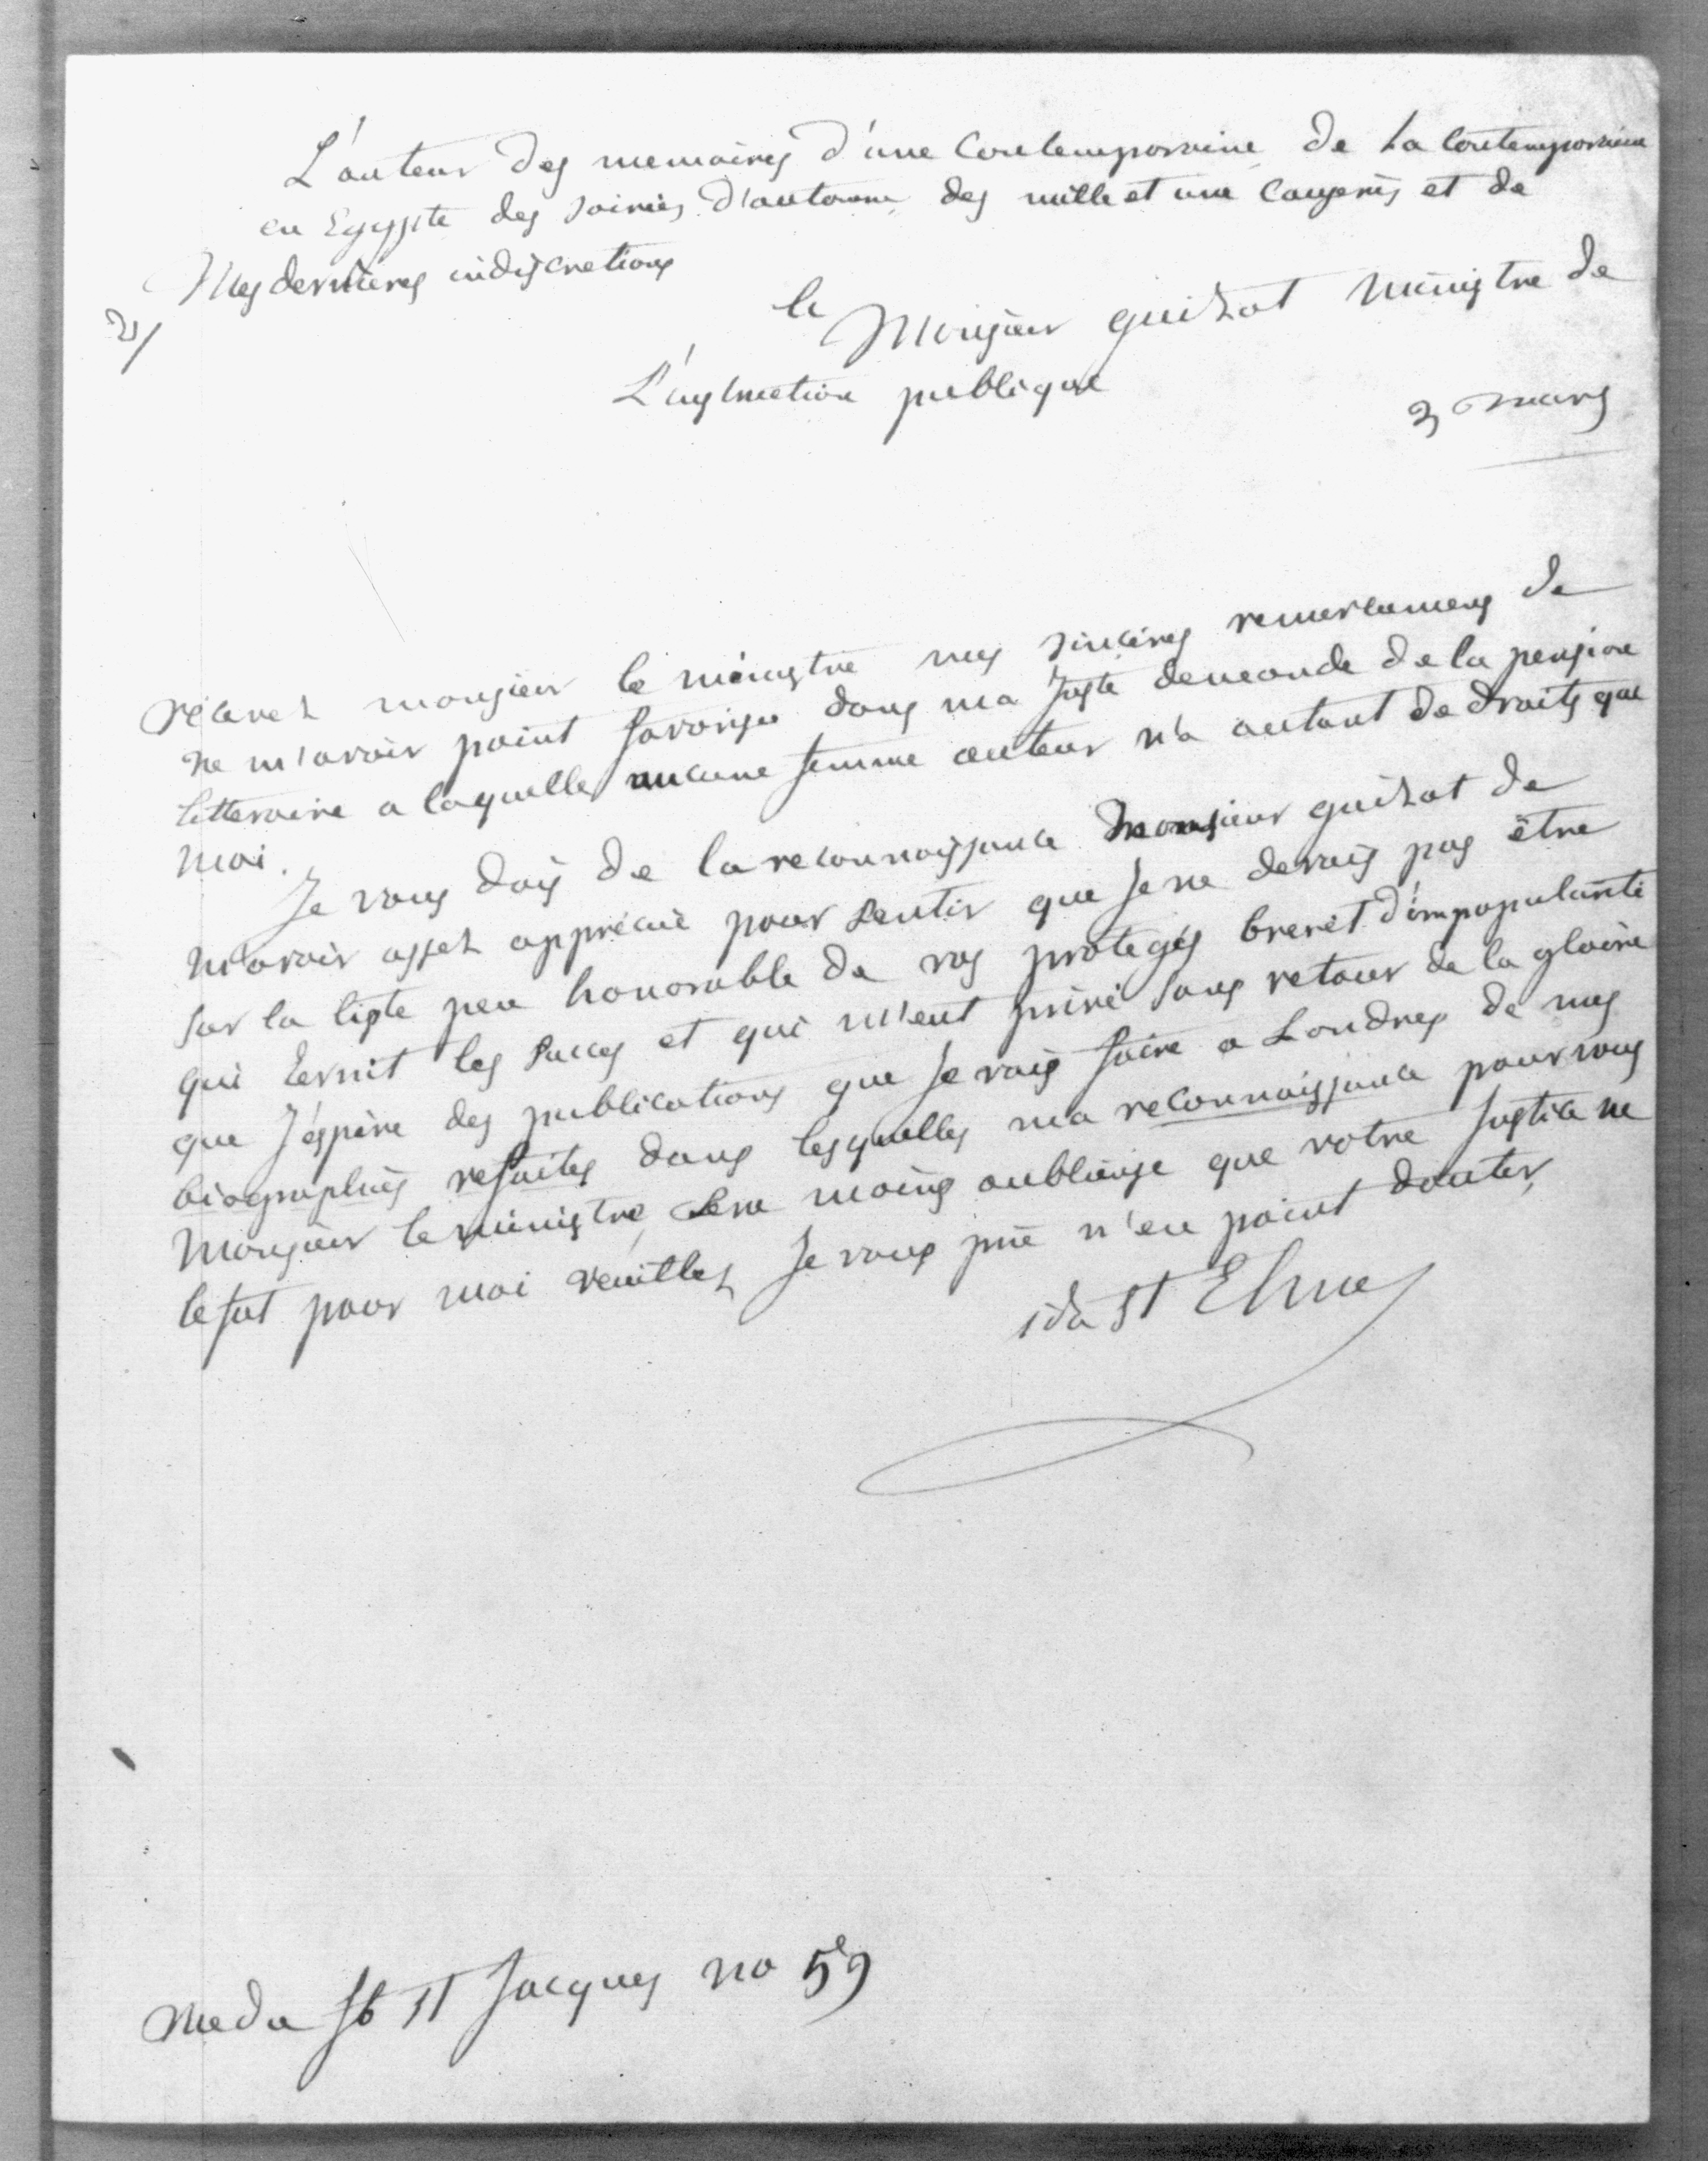 L'auteur des memoires d'une Contemporaine de La Contemporaine
en Egypte des soirées d'automne des mille et une Causeries et de
Mes dernières indiscretions
2/
le Monsieur guizot Ministre de
L'instruction publique
3 mars
récevez monsieur le ministre mes sincères remerciemens de
ne m'avoir point favorisée dans ma juste demande de la pension
litteraire a laquelle aucune femme auteur n'a autant de droits que
moi.
Je vous dois de la reconnaissance Monsieur guizot de
m'avoir assez appréciée pour sentir que je ne devais pas être
sur la liste peu honorable de vos protegés brevet d'impopularité
qui ternit les succes et qui m'eut privé sans retour de la gloire
que j'éspère des publications que je vais faire a Londres de mes
biographies refaites dans lesquelles ma reconnaissance pour vous
Monsieur le ministre sera moins oublieuse que votre justice ne
le fut pour moi veuillez je vous prie n'en point douter
ida st Elme
rue du fb st Jacques no 59